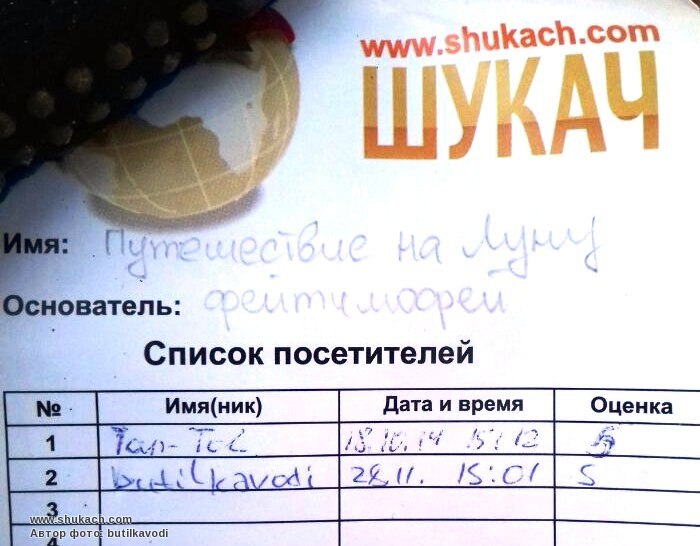 www.shukach.com
ШУКАЧ
Имя: Путешествие на Луну
Основатель: фейтимофей
Список посетителей
№ Имя(ник) Дата и время Оценка
1 18.10.14 15:12 5
2 butilkavodi 28.11. 15:01 5
3
4
www.shukach.com
Автор фото: butilkavodi